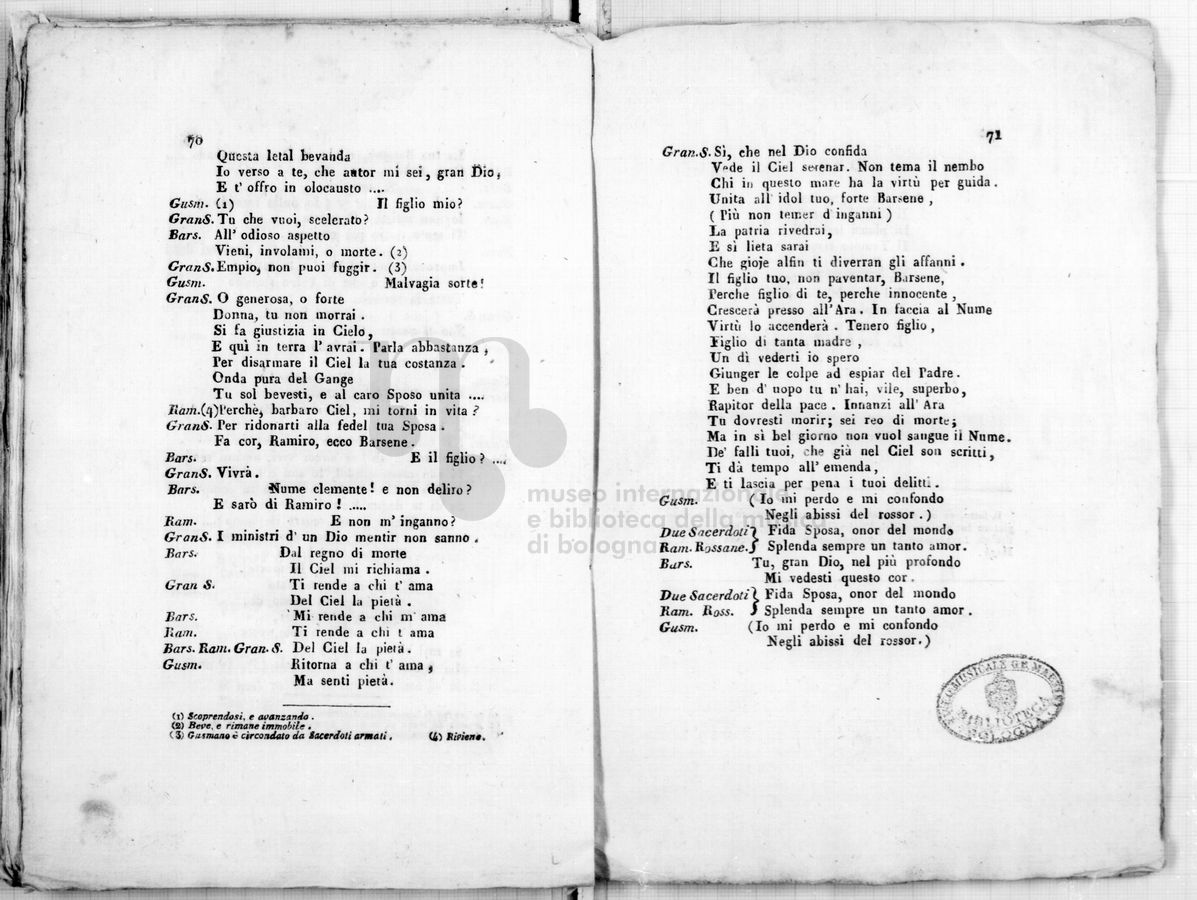 70
Questa letal bevanda
Io verso a te, che autor mi sei, gran Dio,
E t' offro in olocausto ....
Gusm. (1) Il figlio mio?
GranS. Tu che vuoi, scelerato?
Bars. All' odioso aspetto
Vieni, involami, o morte. (2)
GranS. Empio, non puoi fuggir. (3)
Gusm. Malvagia sorte!
GranS. O generosa, o forte
Donna, tu non morrai.
Si fa giustizia in Cielo,
E quì in terra l' avrai. Parla abbastanza,
Per disarmare il Ciel la tua costanza.
Onda pura del Gange
Tu sol bevesti, e al caro Sposo unita ....
Ram.(4) Perchè, barbaro Ciel, mi torni in vita?
GranS. Per ridonarti alla fedel tua Sposa.
Fa cor, Ramiro, ecco Barsene.
Bars. E il figlio? ....
GranS. Vivrà.
Bars. Nume clemente! e non deliro?
E sarò di Ramiro! .....
Ram. E non m' inganno?
GranS. I ministri d' un Dio mentir non sanno.
Bars. Dal regno di morte
Il Ciel mi richiama.
Gran S. Ti rende a chi t' ama
Del Ciel la pietà.
Bars. Mi rende a chi m' ama
Ram. Ti rende a chi t ama
Bars. Ram. Gran. S. Del Ciel la pietà.
Gusm. Ritorna a chi t' ama,
Ma senti pietà.
(1) Scoprendosi, e avanzando.
(2) Beve, e rimane immobile.
(3) Gusmano è circondato da Sacerdoti armati. (4) Riviene.
71
Gran.S. Sì, che nel Dio confida
Vede il Ciel serenar. Non tema il nembo
Chi in questo mare ha la virtù per guida.
Unita all' idol tuo, forte Barsene,
(Più non temer d'inganni)
La patria rivedrai,
E sì lieta sarai
Che gioje alfin ti diverran gli affanni.
Il figlio tuo, non paventar, Barsene,
Perche figlio di te, perche innocente,
Crescerà presso all' Ara. In faccia al Nume
Virtù lo accenderà. Tenero figlio,
Figlio di tanta madre,
Un dì vederti io spero
Giunger le colpe ad espiar del Padre.
E ben d' uopo tu n' hai, vile, superbo,
Rapitor della pace. Innanzi all' Ara
Tu dovresti morir; sei reo di morte;
Ma in sì bel giorno non vuol sangue il Nume.
De' falli tuoi, che già nel Ciel son scritti,
Ti dà tempo all' emenda,
E ti lascia per pena i tuoi delitti.
Gusm. (Io mi perdo e mi confondo
Negli abissi del rossor.)
Due Sacerdoti } Fida Sposa, onor del mondo
Ram. Rossane. } Splenda sempre un tanto amor.
Bars. Tu, gran Dio, nel più profondo
Mi vedesti questo cor.
Due Sacerdoti } Fida Sposa, onor del mondo
Ram. Ross. } Splenda sempre un tanto amor.
Gusm. (Io mi perdo e mi confondo
Negli abissi del rossor.)
museo internazionale
e biblioteca della musica
di bologna
MUSICALE G.B. MARTINI
BIBLIOTECA
BOLOGNA